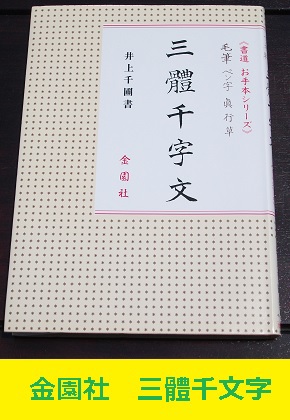 〈書道 お手本シリーズ〉
毛筆 ペン字 眞 行 草
三體千字文
井上千圃書
金園社
金園社 三體千文字